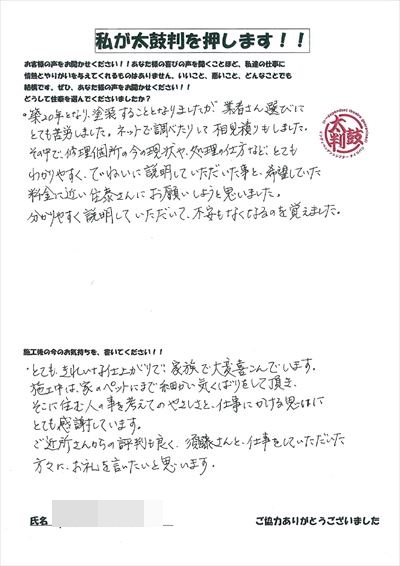 私が太鼓判を押します！！
お客様の声をお聞かせください！！あなた様の喜びの声を聞くことほど、私達の仕事に
情熱とやりがいを与えてくれるものはありません。いいこと、悪いこと、どんなことでも
結構です。ぜひ、あなた様の声をお聞かせください！！
どうして住泰を選んでくださいましたか？
・築20年となり、塗装することとなりましたが、業者さん選びに
とても苦労しました。ネットで調べたりして相見積りもしました。
その中で、修理個所の今の現状や、処理の仕方など、とても
わかりやすく、ていねいに説明していただいた事と、希望していた
料金に近い住泰さんにお願いしようと思いました。
分かりやすく説明していただいて、不安もなくなるのを覚えました。
太鼓判
施工後の今のお気持ちを、書いてください！！
・とても、きれいな仕上がりで、家族で大変喜こんでいます。
施工中は、家のペットにまで細かい気くばりをして頂き、
そこに住む人の事を考えてのやさしさと、仕事にかける思いに
とても感謝しています。
ご近所さんからの評判も良く、須藤さんと、仕事をしていただいた
方々に、お礼を言いたいと思います。
氏名
ご協力ありがとうございました